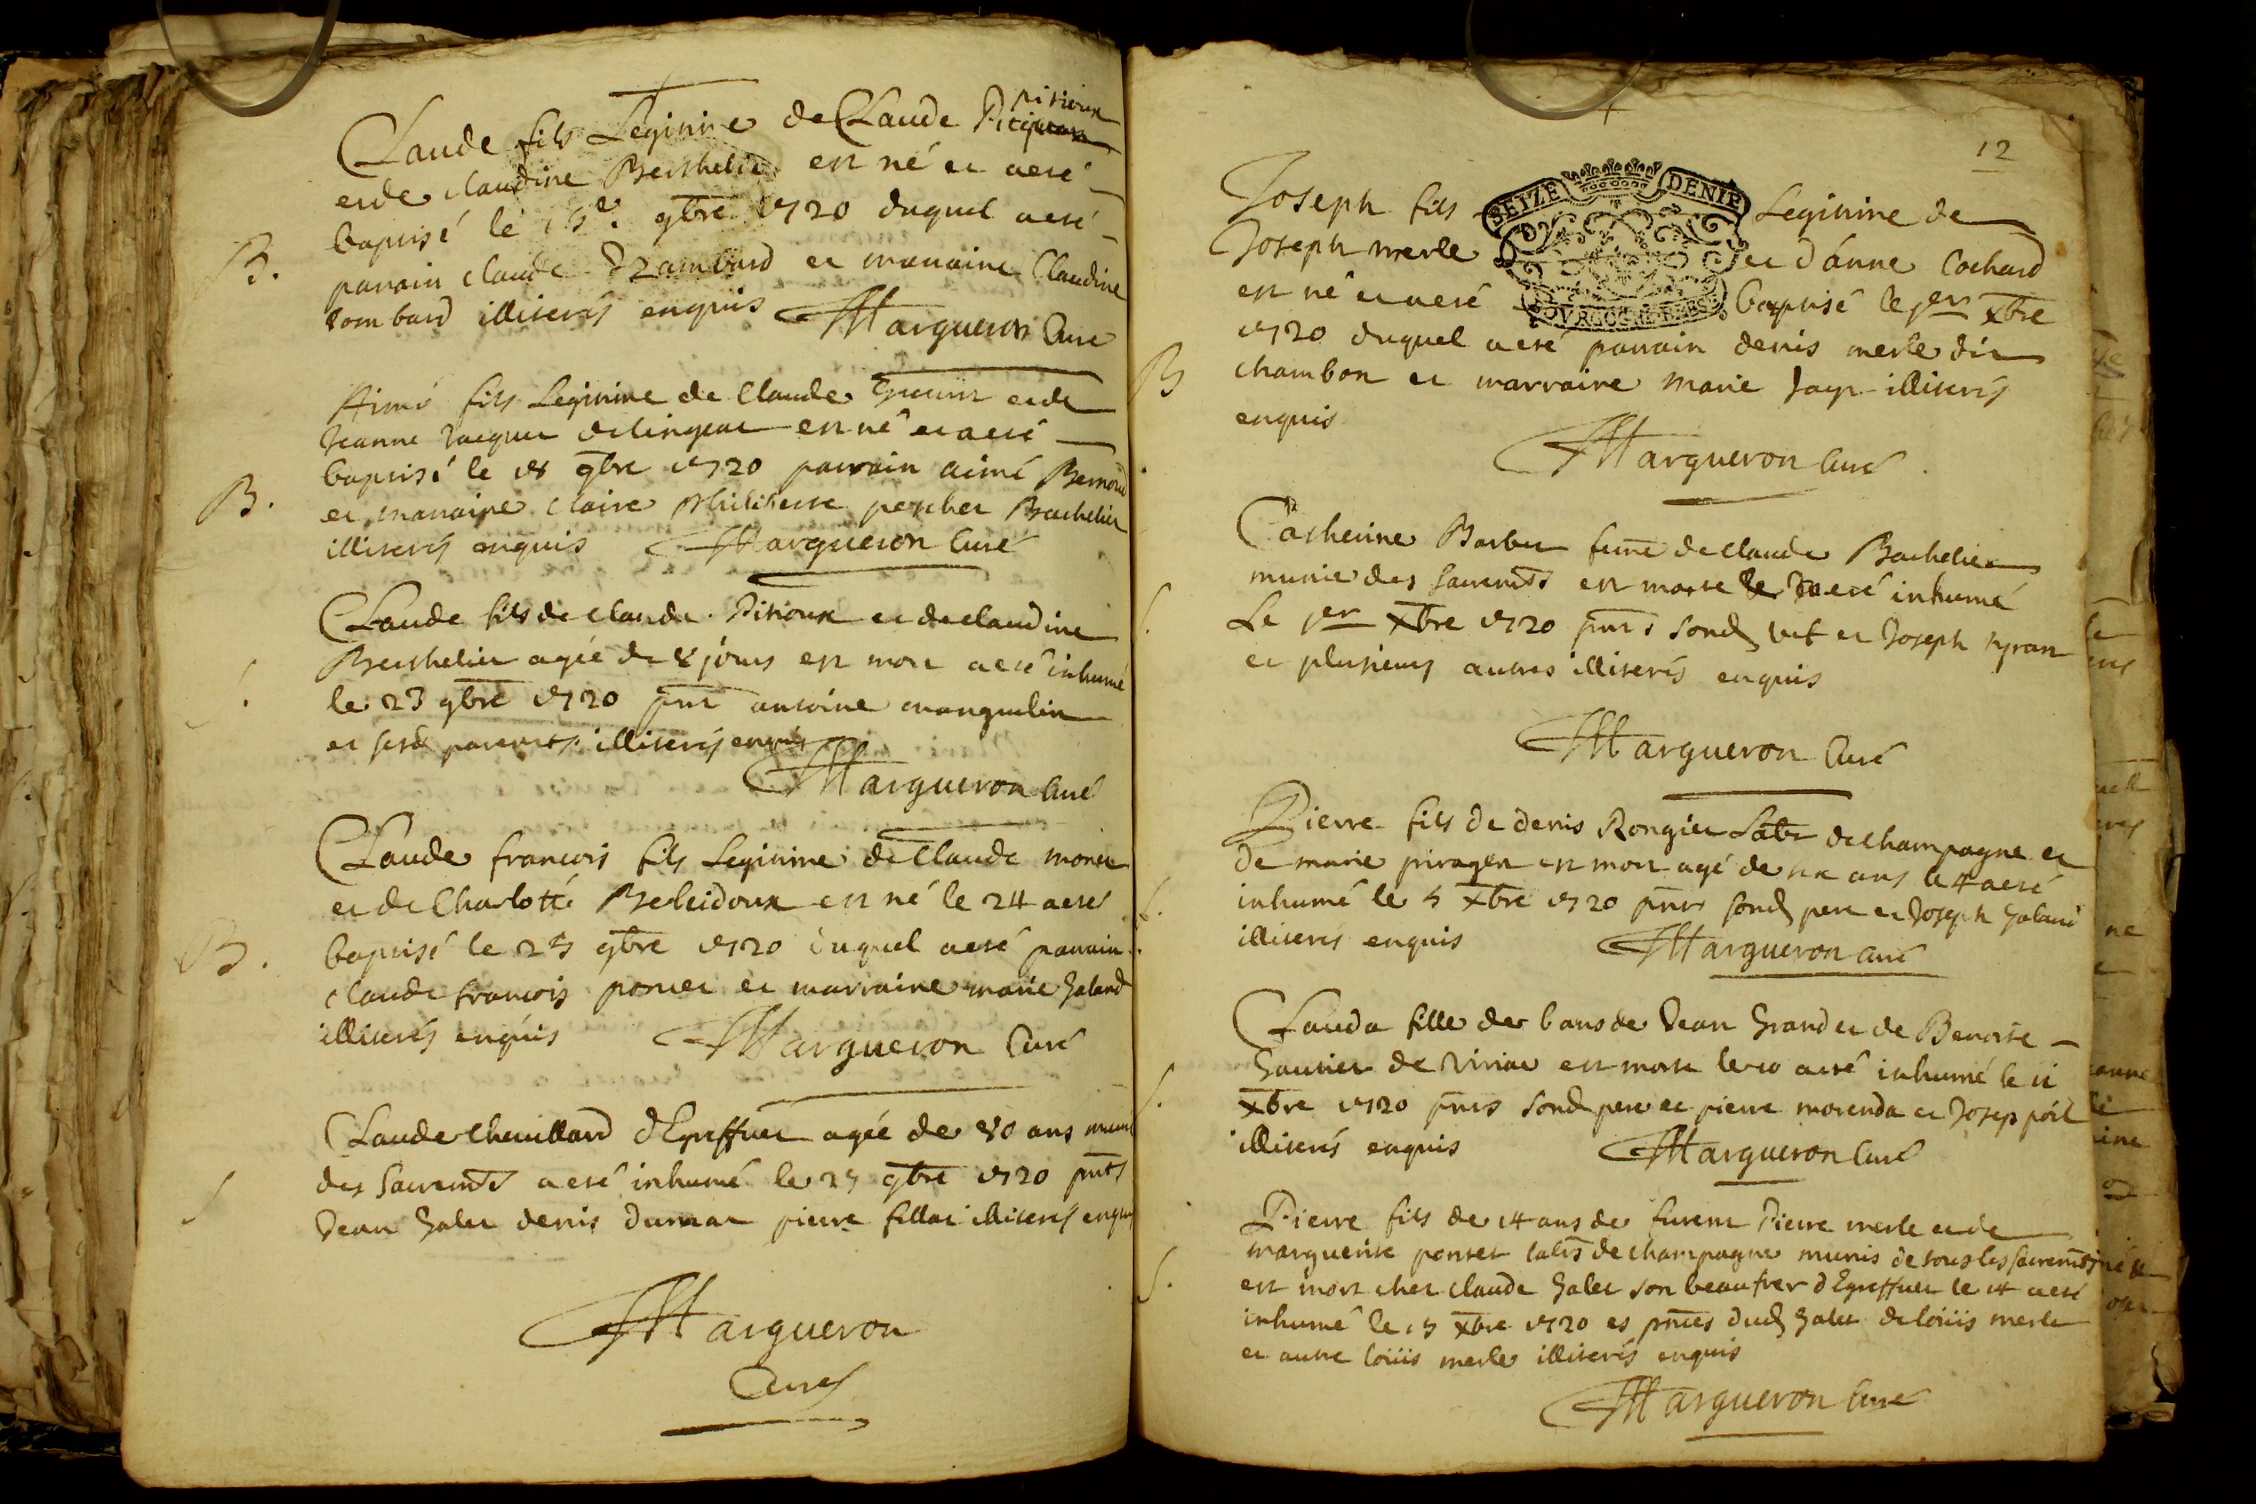 Claude fils Legitime de Claude Pitioux
et de claudine Berthelier est né et a esté
baptisé le 15e. 9bre 1720 duquel a esté
B.
parrain claude Rambard et marraine Claudine
Lombard illiterés enquis Margueron Curé
Aimé fils Legitime de Claude et de
Jeanne Jacquet est né et a esté
baptisé le 18 9bre 1720 parrain aimé Bernard
B.
et marraine Claire Bachelier
illiterés enquis Margueron Curé
Claude fils de claude Pitioux et de claudine
Berthelier agée de 8 jours est mort a esté inhumé
le 23 9bre 1720 pnt antoine manguelin
S.
et sesd parents illiterés enquis
Margueron Curé
Claude francois fils Legitime de Claude monet
et de Charlotte Beheidoux est né le 24 a esté
baptisé le 25 9bre 1720 duquel a esté parrain
B.
claude francois ponset et marraine marie Galand
illiterés enquis Margueron Curé
Claude Cheuillard d'Egreffuet agée de 80 ans muni
des Sacremts a esté inhumé le 27 9bre 1720 pnts
S
Jean Galet denis dumar pierre fillat illiterés enquis
Margueron
Curé
12
SEIZE DENIE
Joseph fils Legitime de
Joseph merle et d'Anne Cochard
est né et a esté baptisé le 1er Xbre
1720 duquel a esté parrain denis merle dit
B
chambon et marraine Marie illiterés
enquis
Margueron Curé
Catherine Barbet feme de claude Bachelier
munie des sacremts est morte le 30 a esté inhumé
Le 1er Xbre 1720 pnts sond vef et Joseph
S.
et plusieurs autres illiterés enquis
Margueron Curé
Pierre fils de denis Rongier Labr de champagne et
de marie est mort agé de six ans le 4 a esté
inhumé le 5 Xbre 1720 pnts sond pere et Joseph Galand
S.
illiterés enquis Margueron Curé
Clauda fille de 6 ans de Jean Grand et de Benoite
Gautier de Viriat est morte le 10 a esté inhumé le 11
S.
Xbre 1720 pnts sond pere et pierre morenda et Josep
illiterés enquis Margueron Curé
Pierre fils de 14 ans de furent Pierre merle et de
marguerite ponset labrs de champagne munis de tous les sacremts
S.
est mort chez claude Galet son beaufrer d'Egreffuet le 14 a esté
inhumé le 15 Xbre 1720 es pntes dud Galet de loüis merle
et autre loüis merle illiterés enquis
Margueron Curé